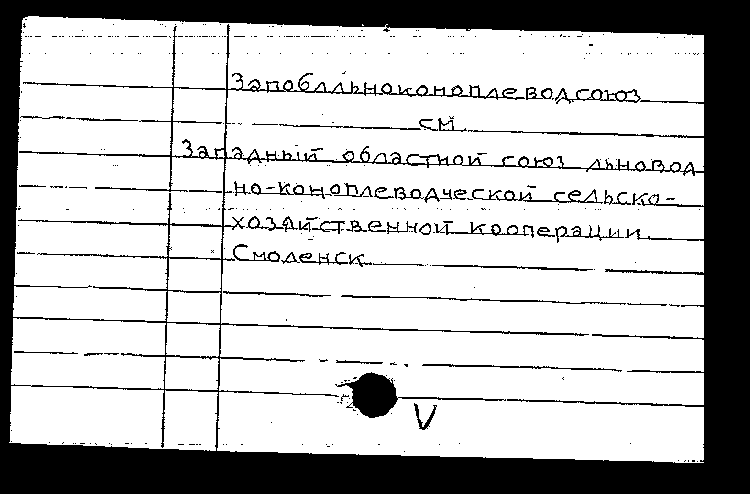 Запоблльноконоплеводсоюз
см
Западный областной союз льновод
но-коноплеводческой сельско-
хозяйственной кооперации.
Смоленск
V